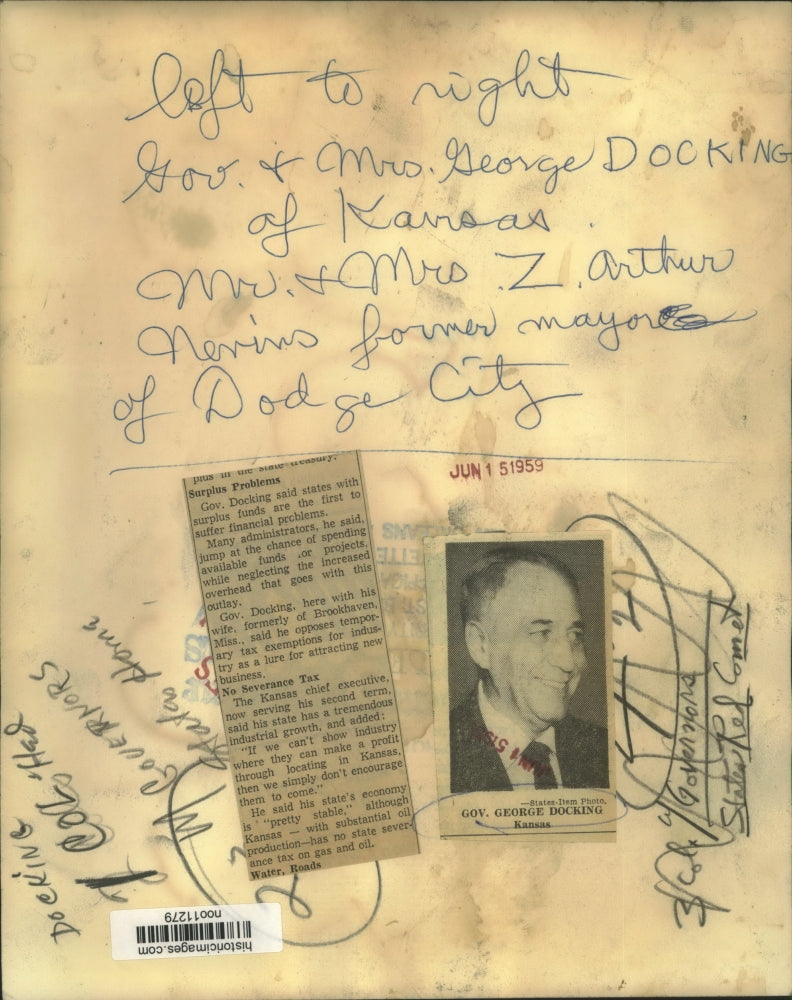 left to right
Gov. & Mrs. George DOCKING
of Kansas.
Mr. & Mrs. Z. Arthur
Nevins former mayor
of Dodge City
JUN 15 1959
plus in the state treasury.
Surplus Problems
Gov. Docking said states with
surplus funds are the first to
suffer financial problems.
Many administrators, he said,
jump at the chance of spending
available funds or projects,
while neglecting the increased
overhead that goes with this
outlay.
Gov. Docking, here with his
wife, formerly of Brookhaven,
Miss., said he opposes tempor-
ary tax exemptions for indus-
try as a lure for attracting new
business.
No Severance Tax
The Kansas chief executive,
now serving his second term,
said his state has a tremendous
industrial growth, and added:
"If we can't show industry
where they can make a profit
through locating in Kansas,
then we simply don't encourage
them to come."
He said his state's economy
is "pretty stable," although
Kansas — with substantial oil
production—has no state sever-
ance tax on gas and oil.
Water, Roads
—States-Item Photo.
GOV. GEORGE DOCKING
Kansas
JUN 15 1959
DOCKING
GOVERNORS
3/Col. Governors
States Red Comet
historicimages.com
noo11279